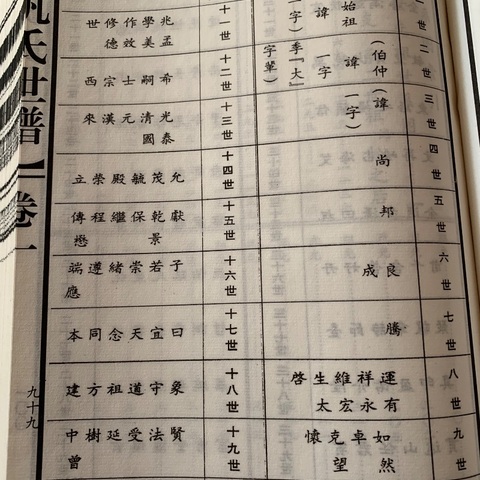 世
始祖
諱
一字)
二世
(伯仲
諱
一字
季『大』
字輩)
三世
(諱
一字)
四世
尚
五世
邦
六世
良成
七世
騰
八世
運祥維生啓
有永宏太
九世
如卓克懷
然望
十一世
兆學作修世
孟美效德
十二世
希嗣士宗西
十三世
光清元漢來
泰國
十四世
允茂毓殿榮立
十五世
獻乾保繼程傳
景懋
十六世
子若崇緒遵端
應
十七世
曰宜天念同本
十八世
象守道祖方建
十九世
賢法受延樹中
曾
氏世譜
卷一
九十九